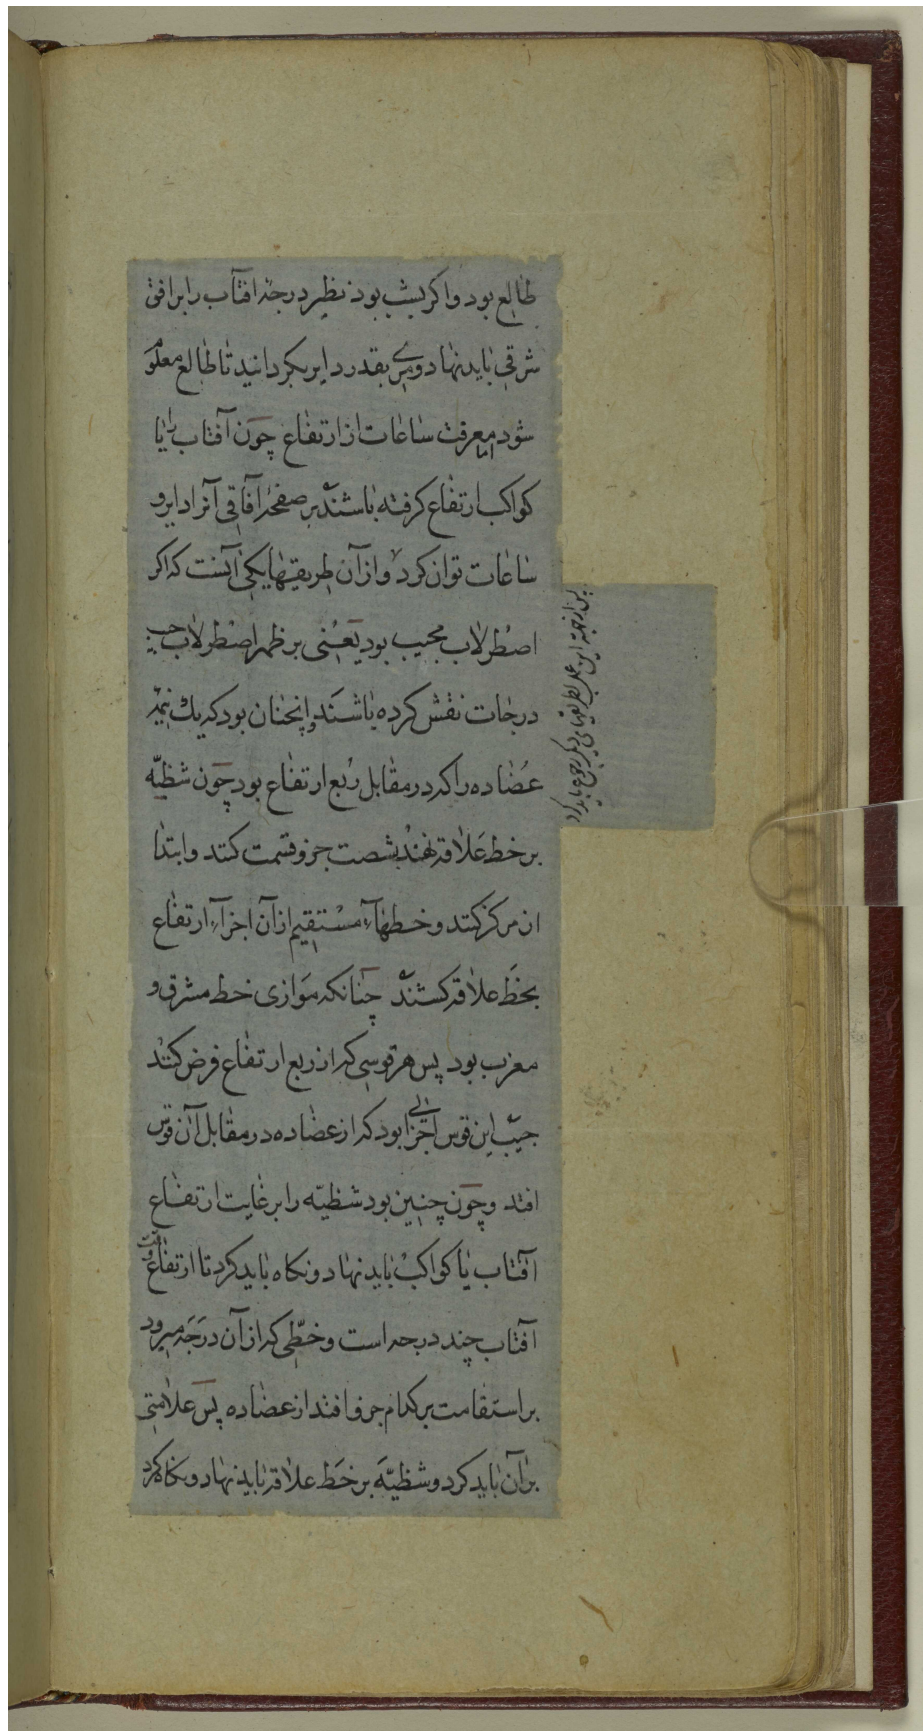 طالع بود و اکر بشب بود نظیر درجهٔ افتاب را بر افق
شرقی باید نهاد و مری بقدر دایر بکردانید تا طالع معلوم
شود اما معرفت ساعات از ارتفاع چون آفتاب را یا
کواکب ارتفاع کرفته باشند بر صفحهٔ آفاقی آنرا دایر و
ساعات توان کرد و از آن طریقها یکی آنست که اکر
اصطرلاب مجیب بود یعنی بر ظهر اصطرلاب جیب
درجات نقش کرده باشند و انچنان بود که یك نیمه
عضاده را که در مقابل ربع ارتفاع بود چون شظیّه
بر خط علاقه نهند بشصت جزو قسمت کنند و ابتدا
از مرکز کنند و خطهاء مستقیم از آن اجزآء ارتفاع
بخط علاقه کشند چنانکه موازی خط مشرق و
مغرب بود پس هر قوسی که از ربع ارتفاع فرض کنند
جیب این قوس اجزایی بود که از عضاده در مقابل آن قوس
افتد و چون چنین بود شظیّه را بر غایت ارتفاع
آفتاب یا کواکب باید نهاد و نکاه باید کرد تا ارتفاع وقت
آفتاب چند درجه است و خطّی که از آن درجه میرود
بر استقامت بر کدام جزو افتد از عضاده پس علامتی
بر آن باید کرد و شظیّه بر خط علاقه باید نهاد و نکاه کرد
پس از جهة این عمل بطریقهای دیکر رجوع باید کرد